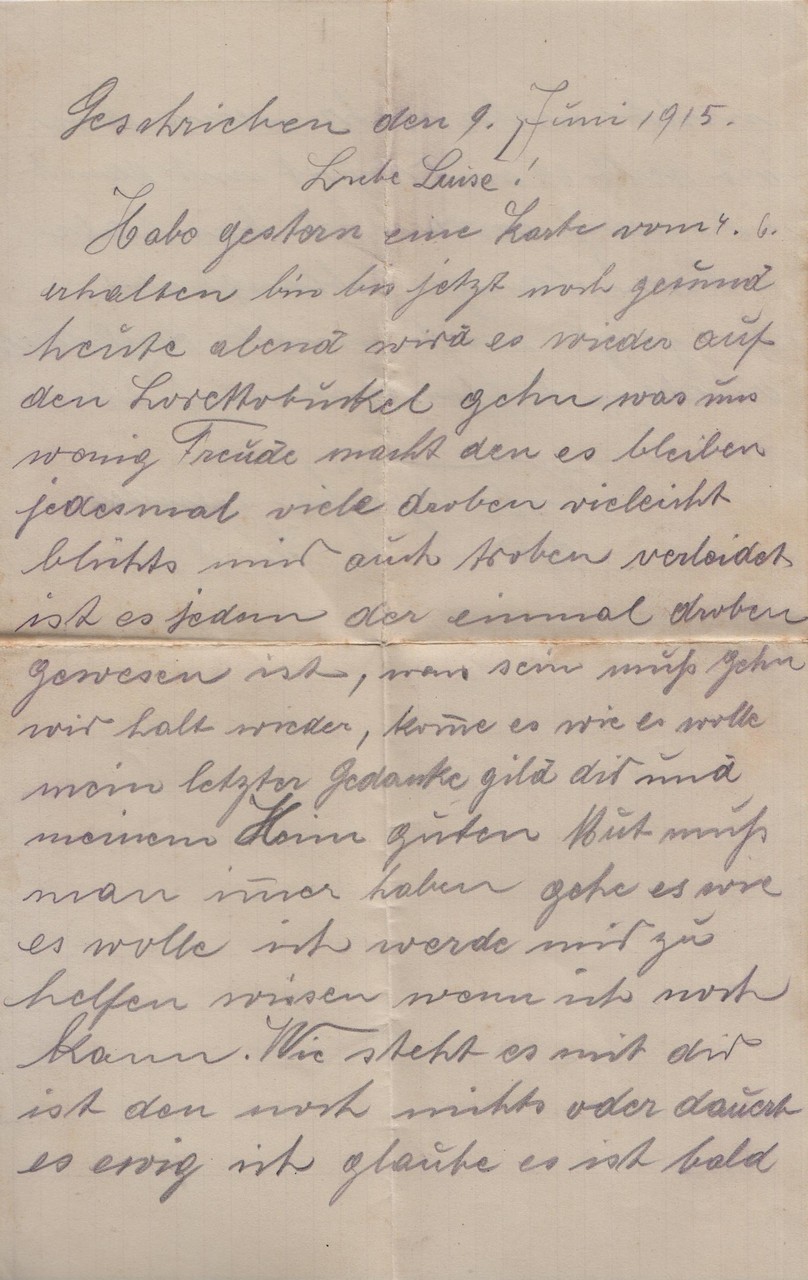 Geschrieben den 9. Juni 1915.
Liebe Luise!
Habe gestern eine Karte vom 4. 6.
erhalten bin bis jetzt noch gesund
heute abend wird es wieder auf
den Lorettobuckel gehn was uns
wenig Freude macht den es bleiben
jedesmal viele droben vieleicht
blühts mir auch troben verleidet
ist es jedem der einmal droben
gewesen ist, was sein muß gehn
wir halt wieder, kom̄e es wie es wolle
mein letzter Gedanke gild dir und
meinem Heim guten Mut muß
man im̄er haben gehe es wie
es wolle ich werde mir zu
helfen wissen wenn ich noch
kann. Wie steht es mit dir
ist den noch nichts oder dauert
es ewig ich glaube es ist bald